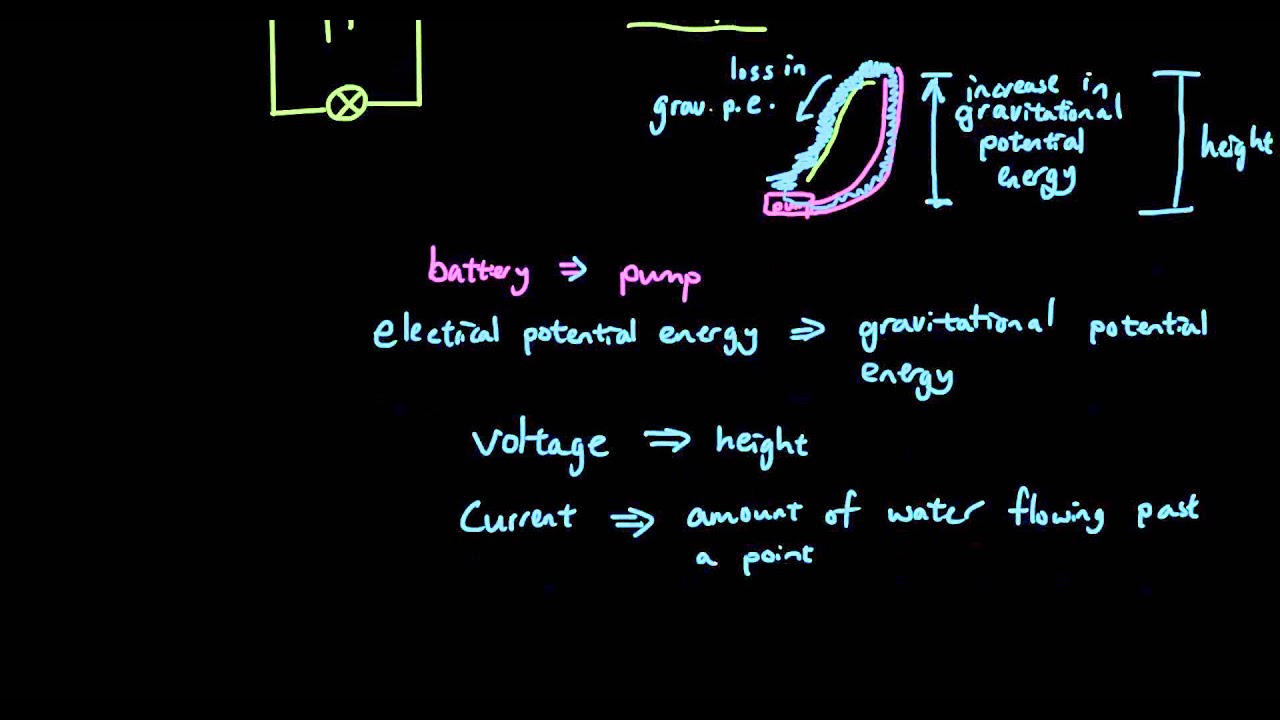 loss in
grav. p.e.
increase in
gravitational
potential
energy
height
pump
battery ⇒ pump
electrical potential energy ⇒ gravitational potential
energy
voltage ⇒ height
Current ⇒ amount of water flowing past
a point